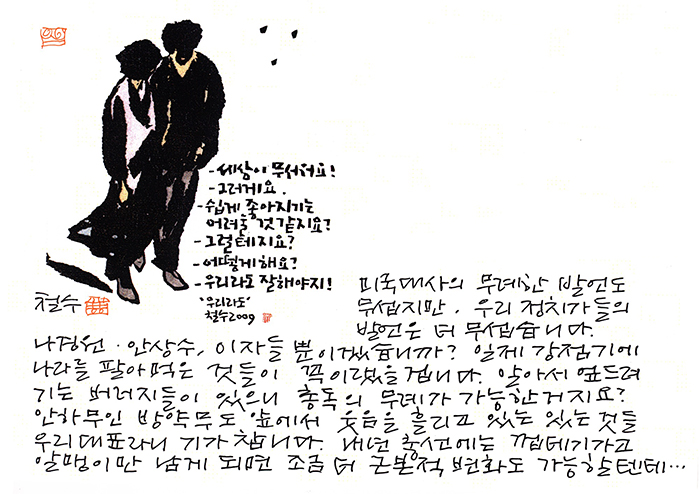 - 세상이 무서워요!
- 그러게요.
- 쉽게 좋아지기는
어려울 것 같지요?
- 그럴테지요?
- 어떻게해요?
- 우리라도 잘해야지!
'우리라도'
철수2009
철수
피국대사의 무례한 발언도
무섭지만, 우리 정치가들의
발언은 더 무섭습니다.
나경원·안상수, 이자들 뿐이겠습니까? 일제 강점기에
나라를 팔아먹은 것들이 꼭 이랬을겁니다. 알아서 엎드려
기는 버러지들이 있으니 총독의 무례가 가능한거지요?
안하무인 방약무도 앞에서 웃음을 흘리고 있는 있는 것들
우리대표라니 기가 찹니다. 내년 총선에는 껍데기가고
알맹이만 남게 되면 조금 더 근본적 변화도 가능할텐데…